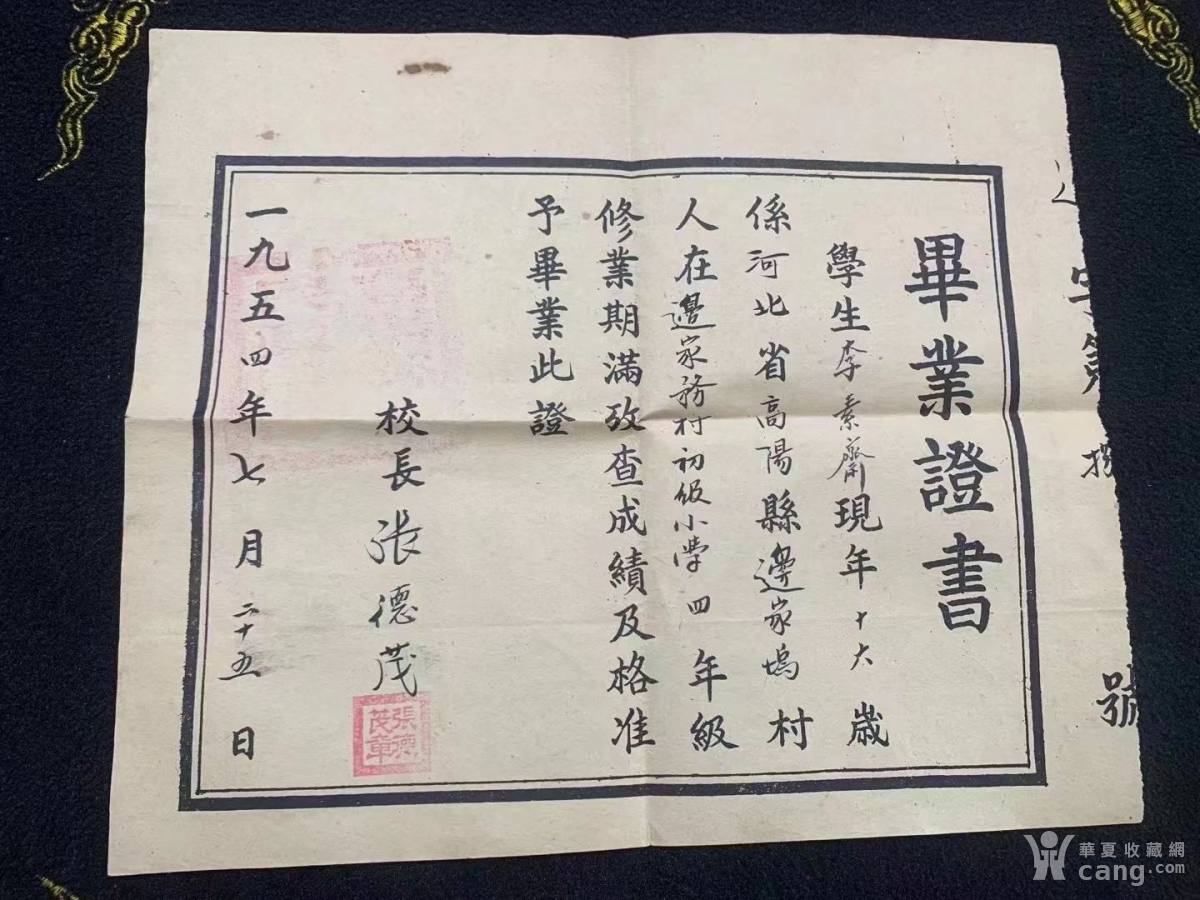 畢業證書
學生李素齋現年十六歲
係河北省高陽縣邊家塢村
人在邊家務村初級小学四年級
修業期滿攷查成績及格准
予畢業此證
校長张德茂
張德茂章
一九五四年七月二十五日
號
華夏收藏網
cang.com